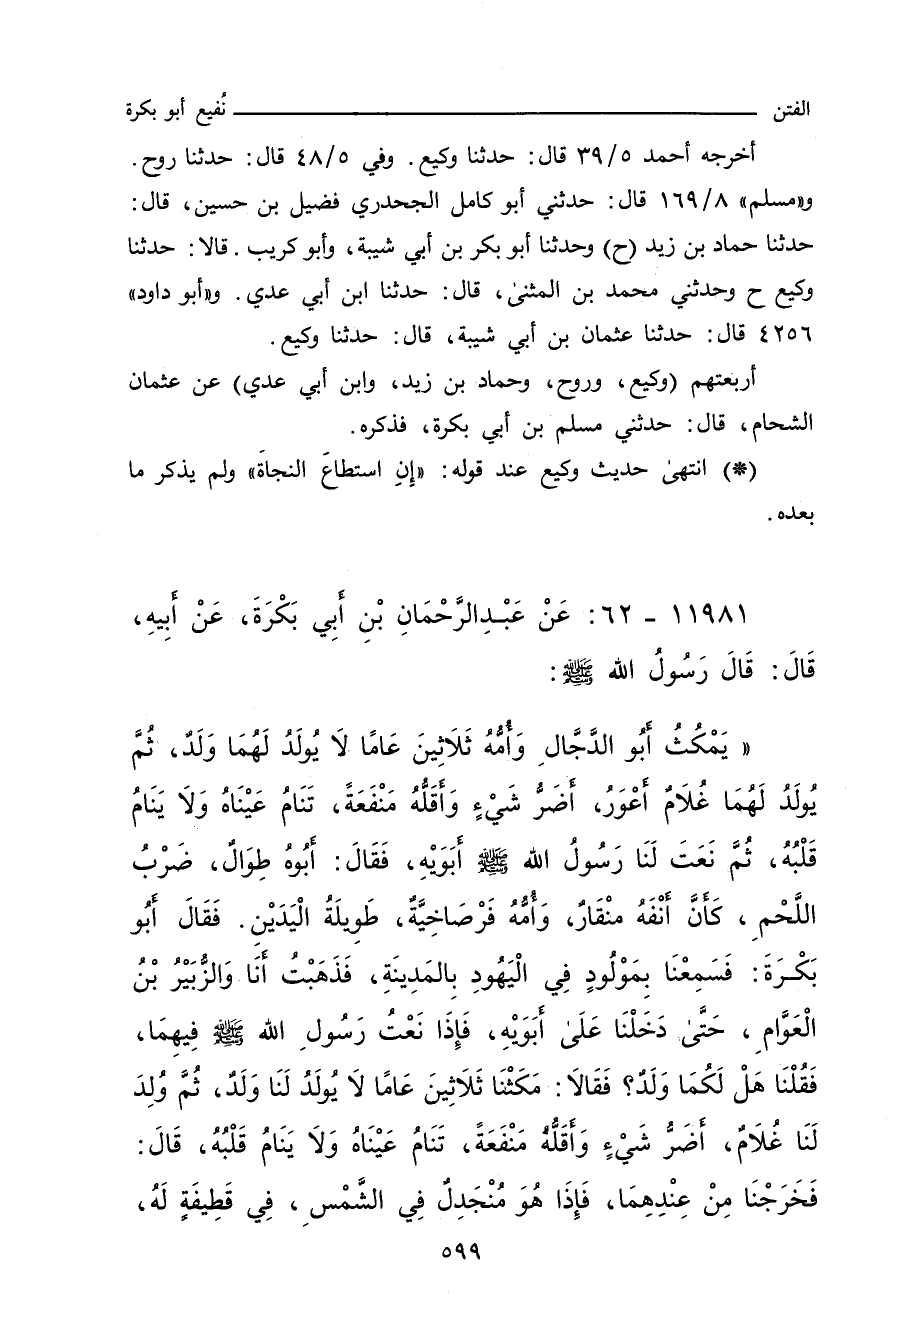 الفتن ــــــــــــــــــــ نُفيع أبو بكرة
أخرجه أحمد ٣٩/٥ قال: حدثنا وكيع. وفي ٤٨/٥ قال: حدثنا روح.
و«مسلم» ١٦٩/٨ قال: حدثني أبو كامل الجحدري فضيل بن حسين، قال:
حدثنا حماد بن زيد (ح) وحدثنا أبو بكر بن أبي شيبة، وأبو كريب. قالا: حدثنا
وكيع ح وحدثني محمد بن المثنىٰ، قال: حدثنا ابن أبي عدي. و«أبو داود»
٤٢٥٦ قال: حدثنا عثمان بن أبي شيبة، قال: حدثنا وكيع.
أربعتهم (وكيع، وروح، وحماد بن زيد، وابن أبي عدي) عن عثمان
الشحام، قال: حدثني مسلم بن أبي بكرة، فذكره.
(*) انتهىٰ حديث وكيع عند قوله: «إِنِ استطاعَ النجاةَ» ولم يذكر ما
بعده.
١١٩٨١ - ٦٢: عَنْ عَبْدِالرَّحْمَانِ بْنِ أَبِي بَكْرَةَ، عَنْ أَبِيهِ،
قَالَ: قَالَ رَسُولُ الله ﷺ:
« يَمْكُثُ أَبُو الدَّجَّالِ وَأُمُّهُ ثَلَاثِينَ عَامًا لَا يُولَدُ لَهُمَا وَلَدٌ، ثُمَّ
يُولَدُ لَهُمَا غُلَامٌ أَعْوَرُ، أَضَرُّ شَيْءٍ وَأَقَلُّهُ مَنْفَعَةً، تَنَامُ عَيْنَاهُ وَلَا يَنَامُ
قَلْبُهُ، ثُمَّ نَعَتَ لَنَا رَسُولُ الله ﷺ أَبَوَيْهِ، فَقَالَ: أَبُوهُ طِوَالٌ، ضَرْبُ
اللَّحْمِ، كَأَنَّ أَنْفَهُ مِنْقَارٌ، وَأُمُّهُ فَرْضَاخِيَّةٌ، طَوِيلَةُ الْيَدَيْنِ. فَقَالَ أَبُو
بَكْرَةَ: فَسَمِعْنَا بِمَوْلُودٍ فِي الْيَهُودِ بِالمَدِينَةِ، فَذَهَبْتُ أَنَا وَالزُّبَيْرُ بْنُ
الْعَوَّامِ، حَتَّىٰ دَخَلْنَا عَلَىٰ أَبَوَيْهِ، فَإِذَا نَعْتُ رَسُولِ الله ﷺ فِيهِمَا،
فَقُلْنَا هَلْ لَكُمَا وَلَدٌ؟ فَقَالَا: مَكَثْنَا ثَلَاثِينَ عَامًا لَا يُولَدُ لَنَا وَلَدٌ، ثُمَّ وُلِدَ
لَنَا غُلَامٌ، أَضَرُّ شَيْءٍ وَأَقَلُّهُ مَنْفَعَةً، تَنَامُ عَيْنَاهُ وَلَا يَنَامُ قَلْبُهُ، قَالَ:
فَخَرَجْنَا مِنْ عِنْدِهِمَا، فَإِذَا هُوَ مُنْجَدِلٌ فِي الشَّمْسِ، فِي قَطِيفَةٍ لَهُ،
٥٩٩